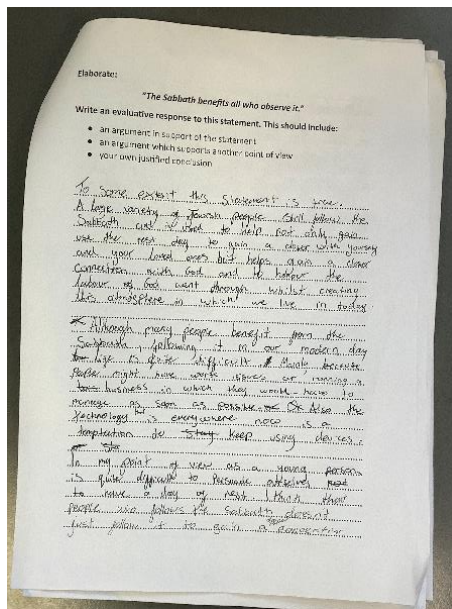 Elaborate:
"The Sabbath benefits all who observe it."
Write an evaluative response to this statement. This should include:
• an argument in support of the statement
• an argument which supports another point of view
• your own justified conclusion
To some extent this statement is true.
A large variety of Jewish people still follow the
Sabbath and is used to help not only gain
use the rest day to gain a closer with yourself
and your loved ones but helps gain a closer
connection with God and to honour the
labour of God went through whilst creating
this atmosphere in which we live in today
Although many people benefit from the
Sabbath, following it in our modern day
life is quite difficult. Mainly because
people might have work issues or running a
business in which they would have to
manage as soon as possible. Also the
technology is everywhere now is a
temptation to stay keep using devices.
In my point of view as a young person
is quite difficult to persuade ourselves need
to have a day of rest. I think that
people who follows the sabbath doesnt
just follow it to gain a